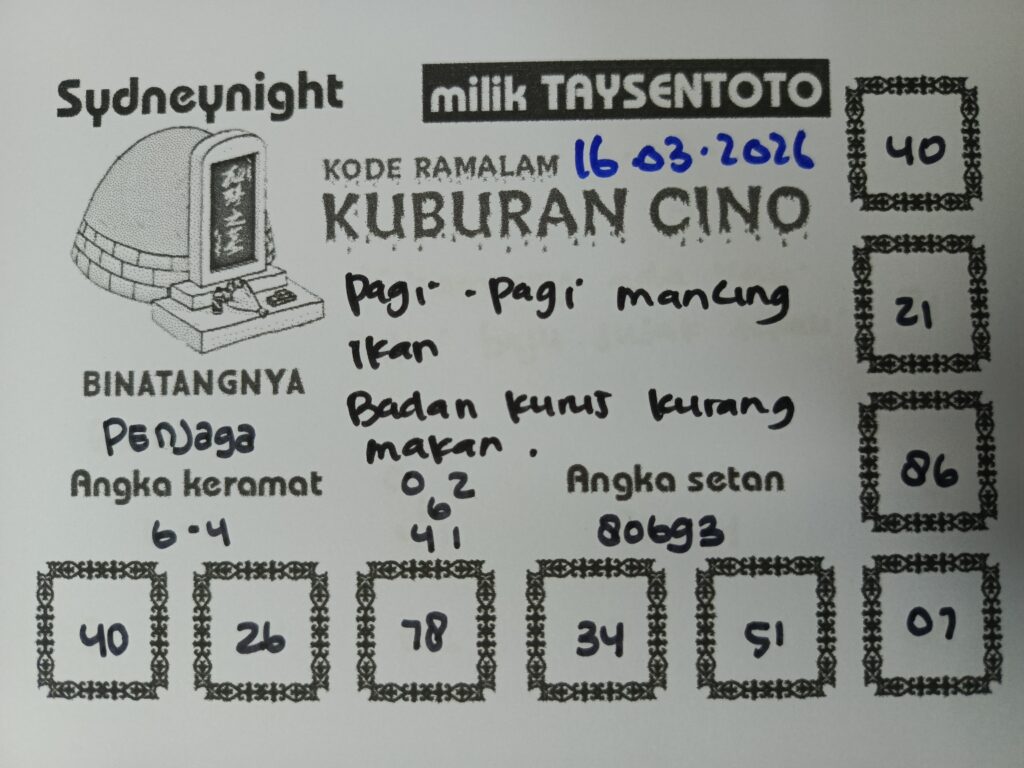 Sydneynight
milik TAYSENTOTO
KODE RAMALAM 16.03.2026
KUBURAN CINO
Pagi - Pagi mancing
Ikan
Badan kurus kurang
makan.
BINATANGNYA
Penjaga
Angka keramat
6-4
0 2
6
4 1
Angka setan
80693
40
21
86
07
40
26
78
34
51